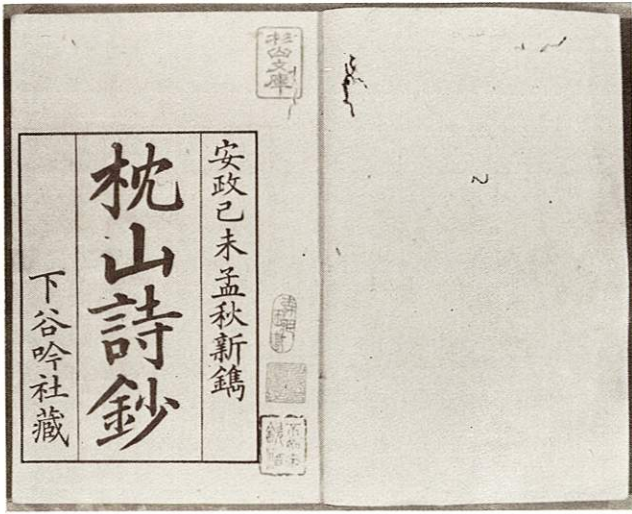 安政己未孟秋新鐫
枕山詩鈔
下谷吟社藏